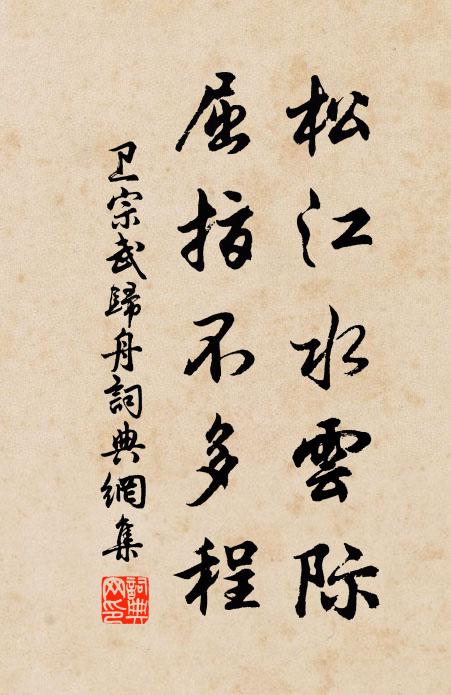 松江水雲际
屈指不多程
卫宗武歸舟詞典網集
詞典網印